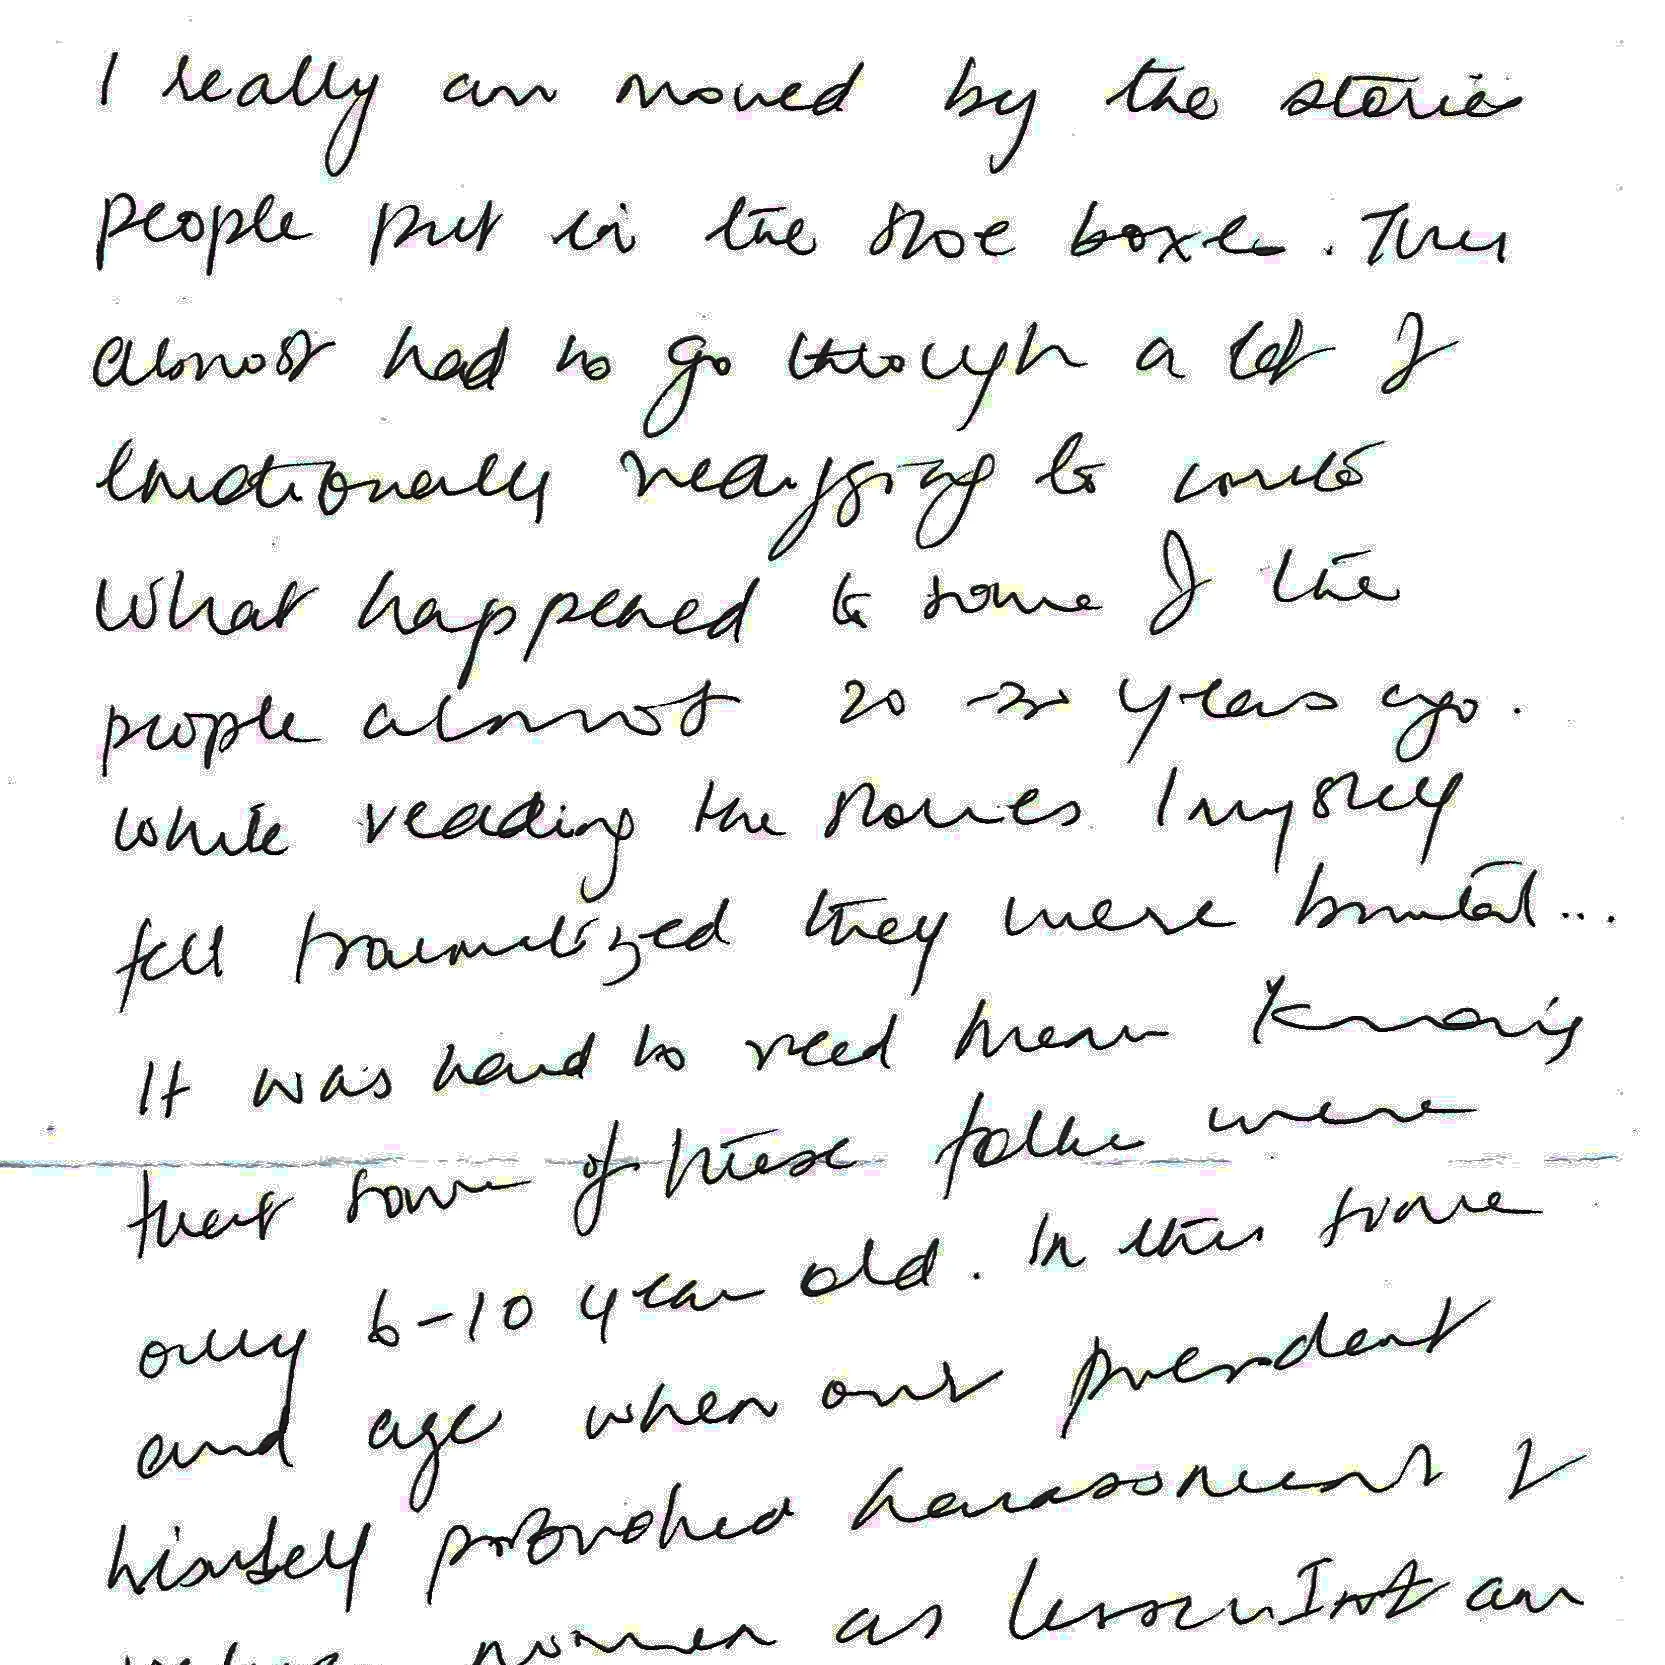 I really am moved by the stories
people put in the shoe boxes. They
almost had to go through a lot of
emotionally to write
What happened to some of the
people almost 20-30 years ago.
while reading the stories I myself
felt traumatized they were brutal...
It was hard to read them knowing
that some of these folks were
only 6-10 year old. In this time
and age when our president
himself provoked harassment of
women as lesser am